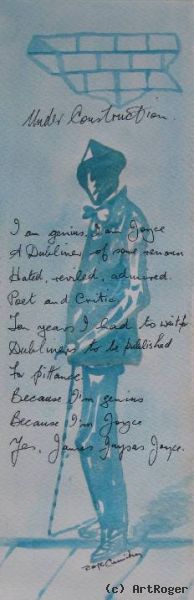 Under Construction.
I am genius. I am Joyce
A Dubliner of some renown
Hated, reviled, admired.
Poet and Critic.
Ten years I had to wait for
Dubliners to be published
For pittance.
Because I'm genius
Because I'm Joyce
Yes, James Joyce.
(c) ArtRoger